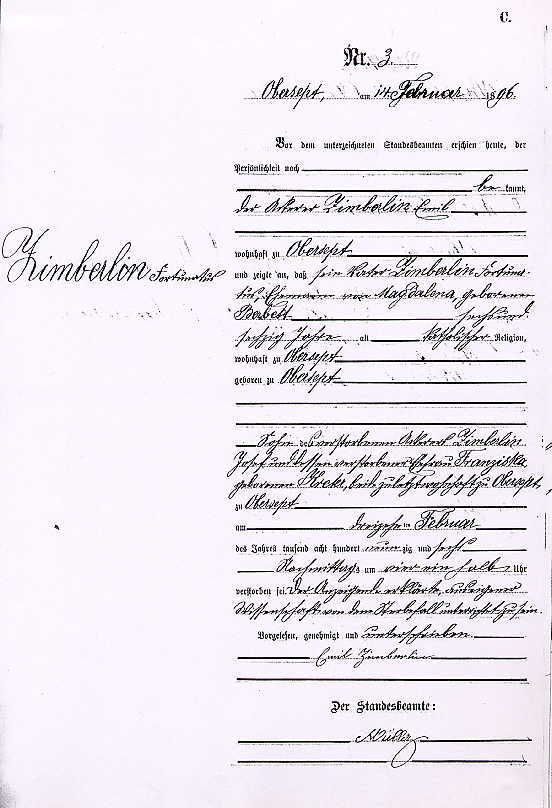 C.
Nr. 3.
Obersept, am 14. Februar 1896.
Vor dem unterzeichneten Standesbeamten erschien heute, der
Persönlichkeit nach
bekannt,
der Ackerer Zimberlin Emil
wohnhaft zu Obersept
Zimberlin Fortunatus
und zeigte an, daß sein Vater Zimberlin Fortuna-
tus, Ehemann von Magdalena, geborenen
sechsund-
sechzig Jahre alt katholischer Religion,
wohnhaft zu Obersept
geboren zu Obersept
Sohn des verstorbenen Ackerers Zimberlin
Josef und dessen verstorbenen Ehefrau Franziska
geborenen beide zuletzt wohnhaft zu Obersept,
zu Obersept
am dreizehn Februar
des Jahres tausend acht hundert neunzig und sechs
Nachmittags um vier ein halb Uhr
verstorben sei. Der Anzeigende erklärte, aus eigener
Wissenschaft von dem Sterbefall unterrichtet zu sein.
Vorgelesen, genehmigt und unterschrieben
Emil Zimberlin
Der Standesbeamte:
Müller